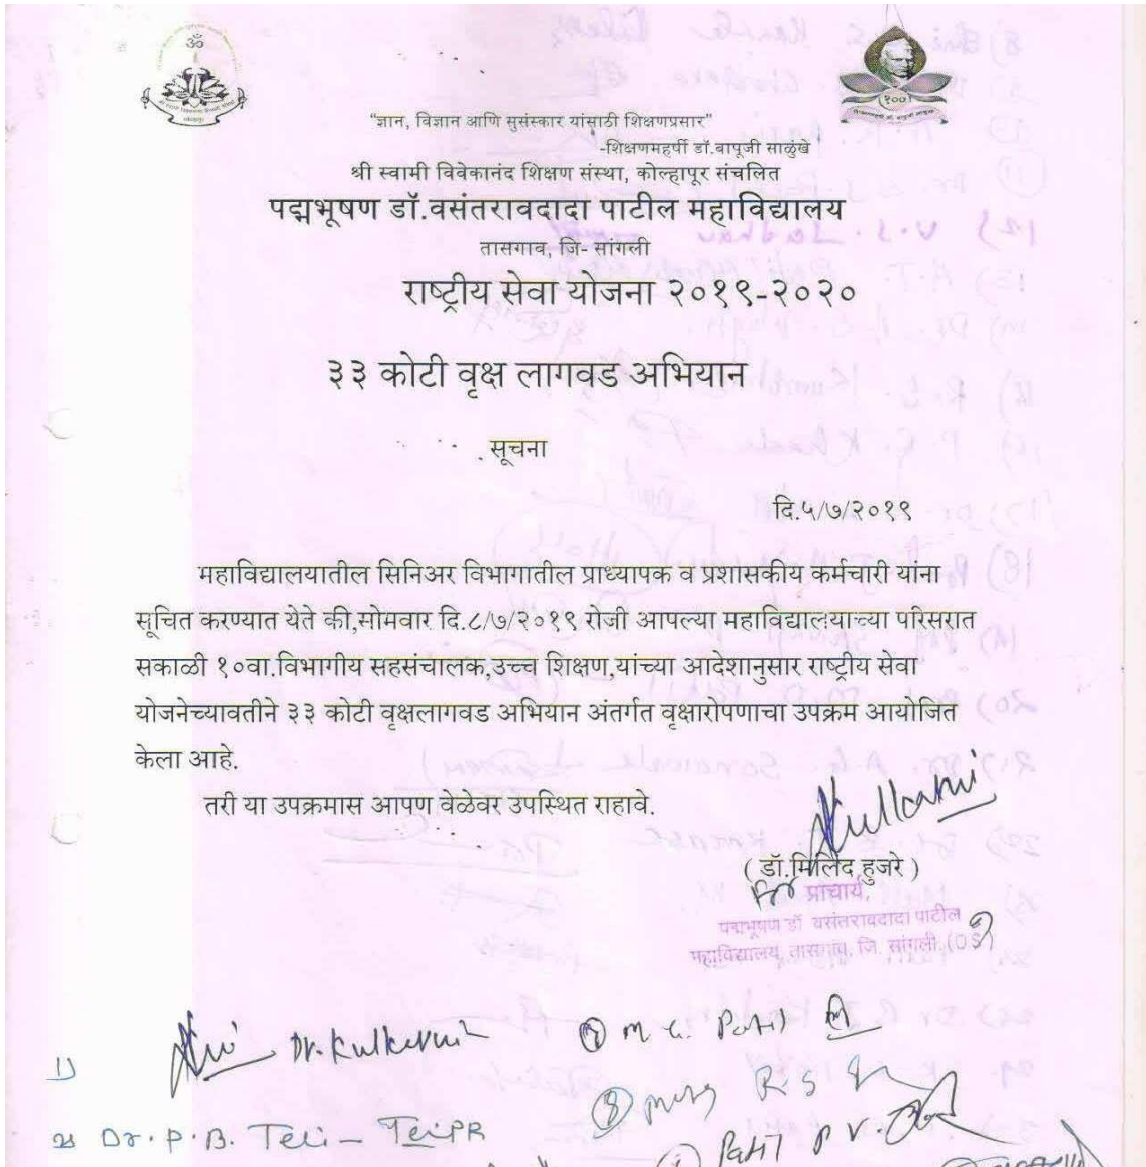 ॐ
१००
"ज्ञान, विज्ञान आणि सुसंस्कार यांसाठी शिक्षणप्रसार"
-शिक्षणमहर्षी डॉ.बापूजी साळुंखे
श्री स्वामी विवेकानंद शिक्षण संस्था, कोल्हापूर संचलित
पद्मभूषण डॉ.वसंतरावदादा पाटील महाविद्यालय
तासगाव, जि- सांगली
राष्ट्रीय सेवा योजना २०१९-२०२०
३३ कोटी वृक्ष लागवड अभियान
सूचना
दि.५/७/२०१९
महाविद्यालयातील सिनिअर विभागातील प्राध्यापक व प्रशासकीय कर्मचारी यांना
सूचित करण्यात येते की,सोमवार दि.८/७/२०१९ रोजी आपल्या महाविद्यालयाच्या परिसरात
सकाळी १०वा.विभागीय सहसंचालक,उच्च शिक्षण,यांच्या आदेशानुसार राष्ट्रीय सेवा
योजनेच्यावतीने ३३ कोटी वृक्षलागवड अभियान अंतर्गत वृक्षारोपणाचा उपक्रम आयोजित
केला आहे.
तरी या उपक्रमास आपण वेळेवर उपस्थित राहावे.
Kulkarni
( डॉ.मिलिंद हुजरे )
For प्राचार्य,
पद्मभूषण डॉ वसंतरावदादा पाटील
महाविद्यालय, तासगाव, जि. सांगली.
1) Dr. Kulkarni
M. C. Patil
२) Dr. P. B. Teli - Teli PR
Patil P V.